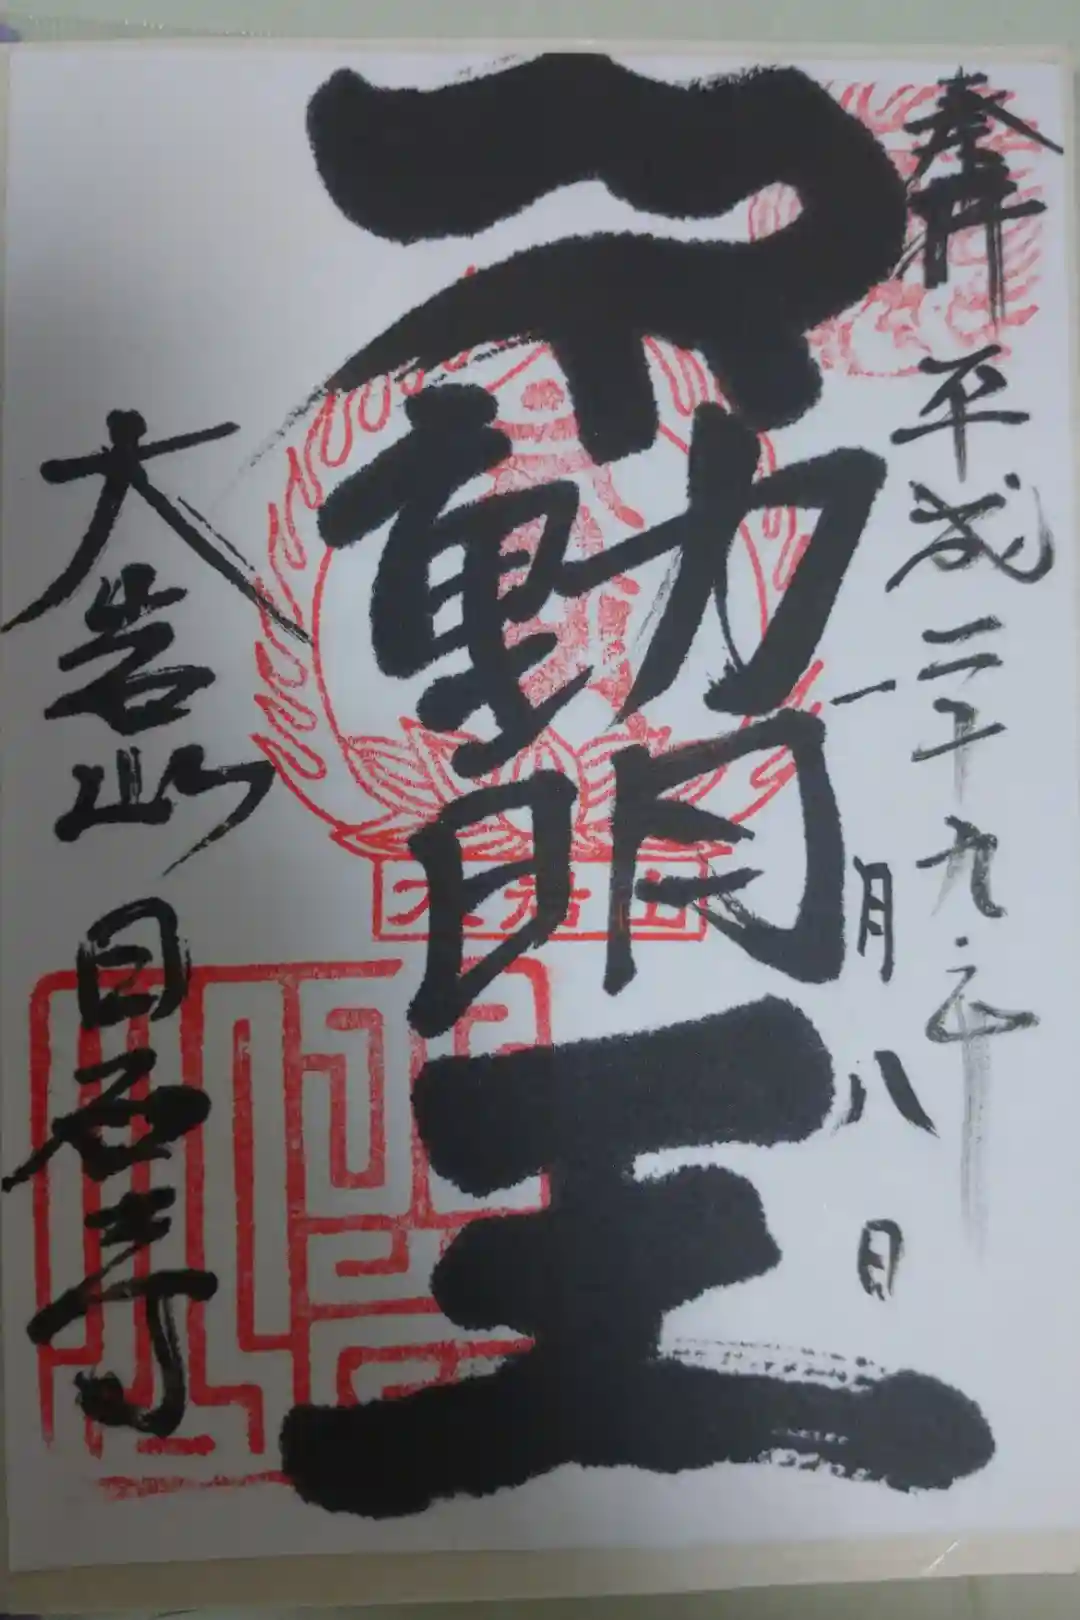 奉拝
平成二十九年
一月八日
不動明王
大岩山
大岩山 日石寺